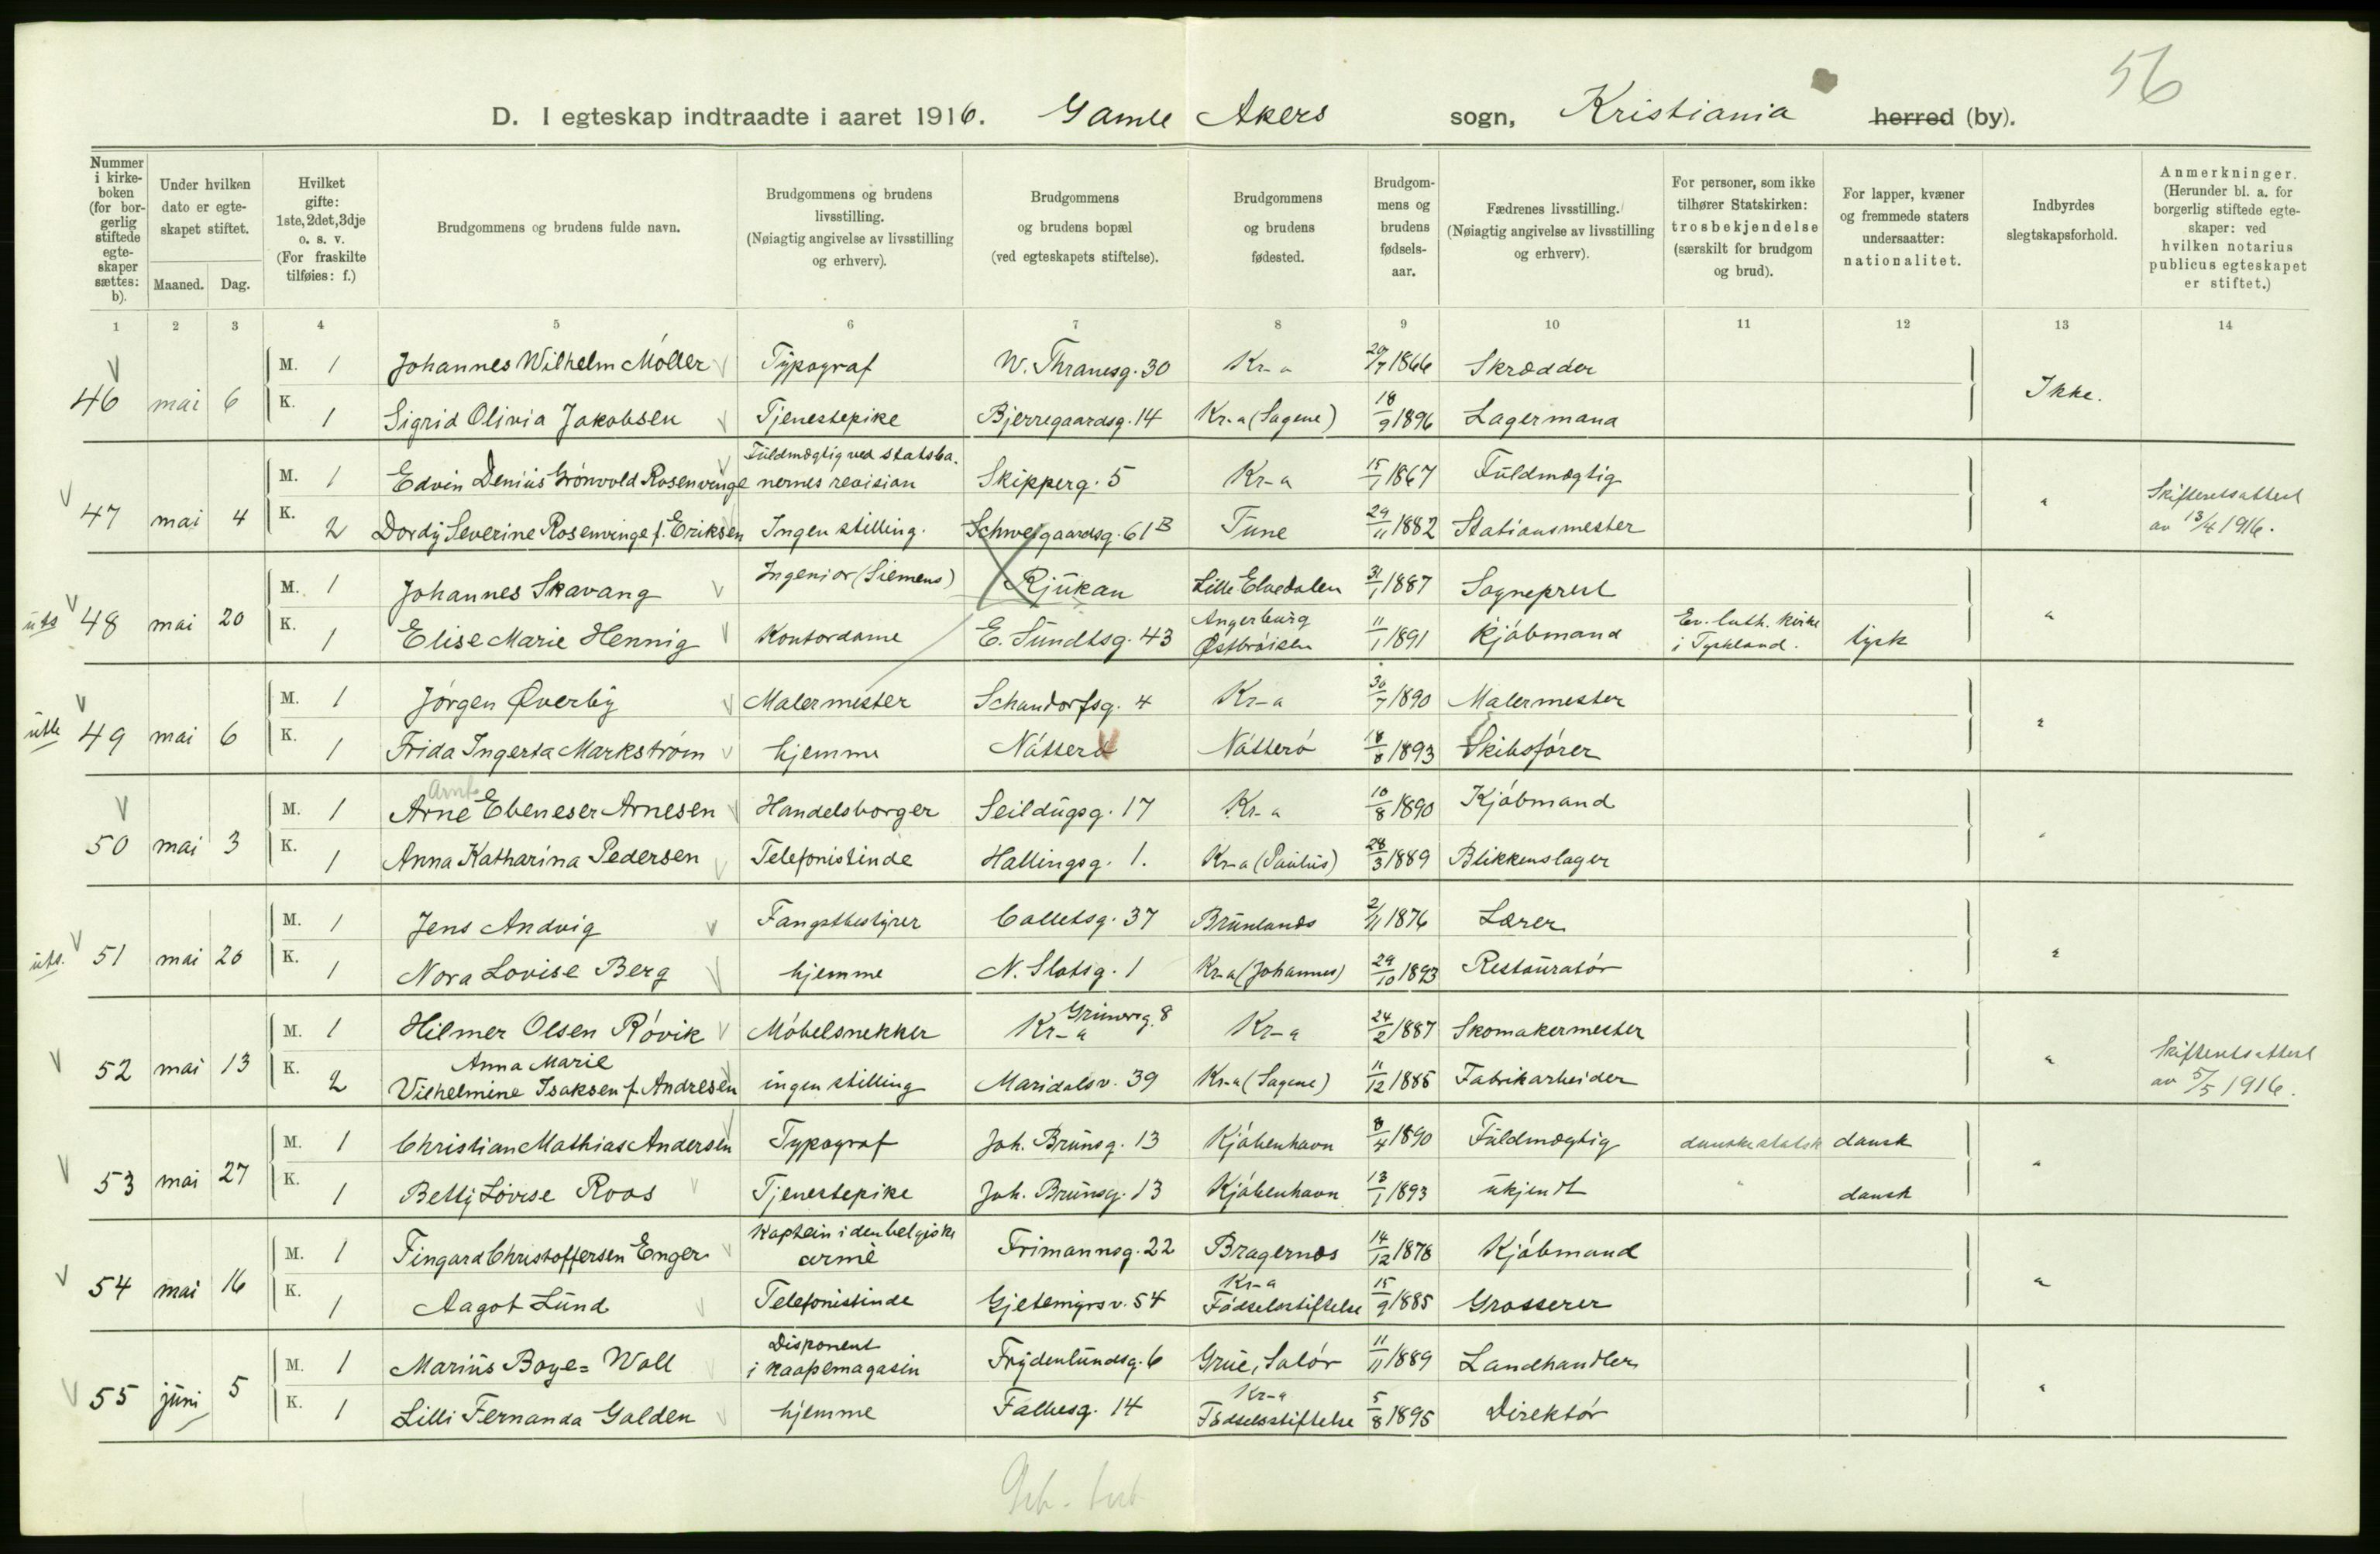 56
D. I egteskap indtraadte i aaret 1916. Gamle Akers sogn, Kristiania herred (by).
Nummer i kirke-boken (for bor-gerlig stiftede egte-skaper sættes: b).
Under hvilken dato er egte-skapet stiftet.
Maaned. Dag.
Hvilket gifte: 1ste, 2det, 3dje o. s. v. (For fraskilte tilføies: f.)
Brudgommens og brudens fulde navn.
Brudgommens og brudens livsstilling. (Nøiagtig angivelse av livsstilling og erhverv).
Brudgommens og brudens bopæl (ved egteskapets stiftelse).
Brudgommens og brudens fødested.
Brudgom-mens og brudens fødsels-aar.
Fædrenes livsstilling. (Nøiagtig angivelse av livsstilling og erhverv).
For personer, som ikke tilhører Statskirken: trosbekjendelse (særskilt for brudgom og brud).
For lapper, kvæner og fremmede staters undersaatter: nationalitet.
Indbyrdes slegtskapsforhold.
Anmerkninger. (Herunder bl. a. for borgerlig stiftede egte-skaper: ved hvilken notarius publicus egteskapet er stiftet.)
1 2 3 4 5 6 7 8 9 10 11 12 13 14
M. 1 Johannes Wilhelm Möller Typograf W. Thranesg. 30 Kr-a 20/7 1866 Skrædder
46 mai 6 Ikke.
K. 1 Sigrid Olivia Jakobsen Tjenestepike Bjerregaardsg. 14 Kr-a (Sagene) 18/9 1896 Lagermand
Fuldmægtig ved statsba-
M. 1 Edvin Denius Grönvold Rosenvinge nernes revision Skipperg. 5 Kr-a 15/1 1867 Fuldmægtig
47 mai 4 " Skifteretsattest
K. 2 Dordy Severine Rosenvinge f. Eriksen Ingen stilling. Schweigaardsg. 61 B Tune 29/11 1882 Stationsmester av 13/4 1916.
M. 1 Johannes Skavang Ingeniör (Siemens) Rjukan Lille Elvedalen 31/1 1887 Sogneprest
uts 48 mai 20 Angerburg Ev. luth. kirke "
K. 1 Elise Marie Hennig Kontordame E. Sundtsg. 43 Østbröisen 11/1 1891 Kjöbmand i Tyskland. tysk
M. 1 Jörgen Øverby Malermester Schandorfsg. 4 Kr-a 30/7 1890 Malermester
49 mai 6 "
K. 1 Frida Ingerta Markström hjemme Nötterö Nötterö 18/8 1893 Skibsförer
M. 1 Arne Ebeneser Arnesen Handelsborger Seildugsg. 17 Kr-a 10/8 1890 Kjöbmand
50 mai 3 "
K. 1 Anna Katharina Pedersen Telefonistinde Hallingsg. 1. Kr-a (Paulus) 28/3 1889 Blikkenslager
M. 1 Jens Andvig Fangstbestyrer Colletsg. 37 Brunlanes 2/11 1876 Lærer
uts. 51 mai 20 "
K. 1 Nora Lovise Berg hjemme N. Slotsg. 1 Kr-a (Johannes) 29/10 1893 Restauratör
Grünersg. 8
M. 1 Hilmer Olsen Rövik Möbelsnekker Kr-a Kr-a 24/2 1887 Skomakermester
52 mai 13 Anna Marie " Skifteretsattest
K. 2 Vilhelmine Isaksen f. Andresen ingen stilling Maridalsv. 39 Kr-a (Sagene) 11/12 1885 Fabrikarbeider av 5/5 1916.
M. 1 Christian Mathias Andersen Typograf Joh. Brunsg. 13 Kjöbenhavn 8/4 1890 Fuldmægtig danske statsk dansk
53 mai 27 "
K. 1 Betty Lovise Roos Tjenestepike Joh. Brunsg. 13 Kjöbenhavn 13/1 1893 ukjendt " dansk
Kaptein i den belgiske
M. 1 Fingard Christoffersen Enger armè Frimannsg. 22 Bragernes 14/12 1878 Kjöbmand
54 mai 16 Kr-a "
K. 1 Aagot Lund Telefonistinde Gjetemyrsv. 54 Födselsstiftelse 15/9 1885 Grosserer
Disponent
M. 1 Marius Boye= Woll i kaapemagasin Frydenlundsg. 6 Grue, Solör 11/11 1889 Landhandler
55 juni 5 Kr-a "
K. 1 Lilli Fernanda Golden hjemme Falbesg. 14 Födselsstiftelse 5/8 1895 Direktör